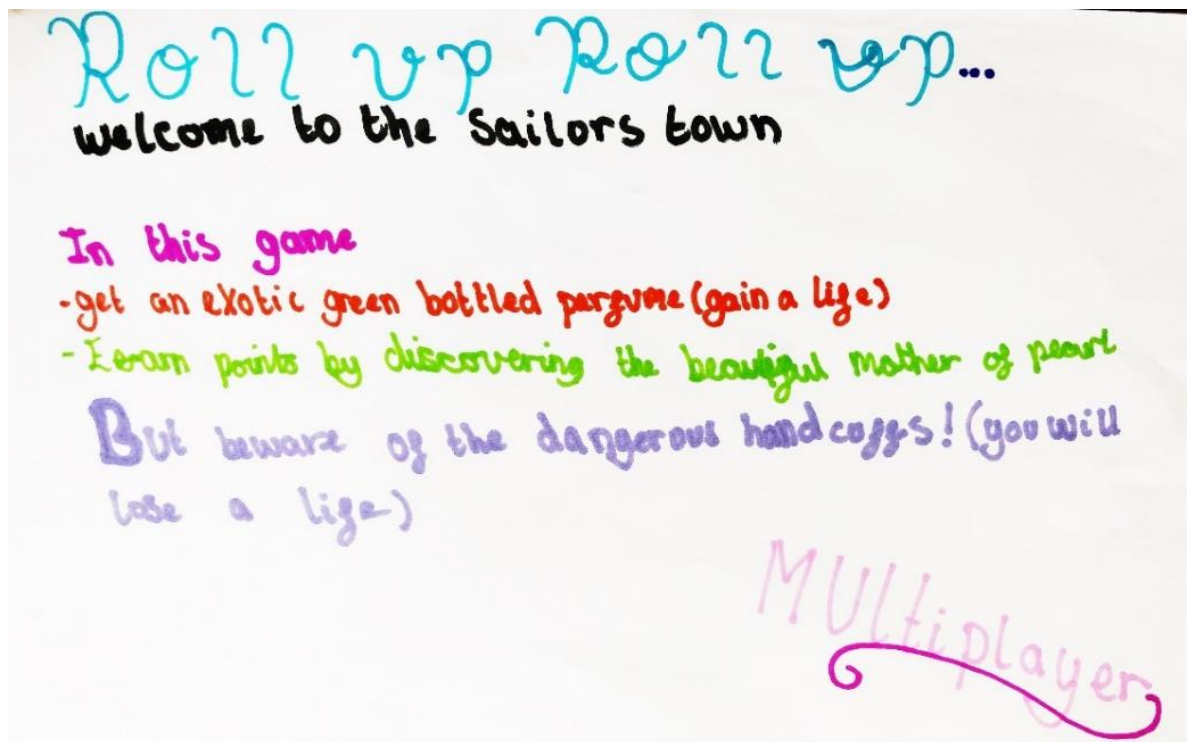 Roll up Roll up...
welcome to the Sailors town
In this game
-get an exotic green bottled perfume (gain a life)
- Earn points by discovering the beautiful mother of pearl
But beware of the dangerous handcuffs! (you will
lose a life)
MUltiplayer